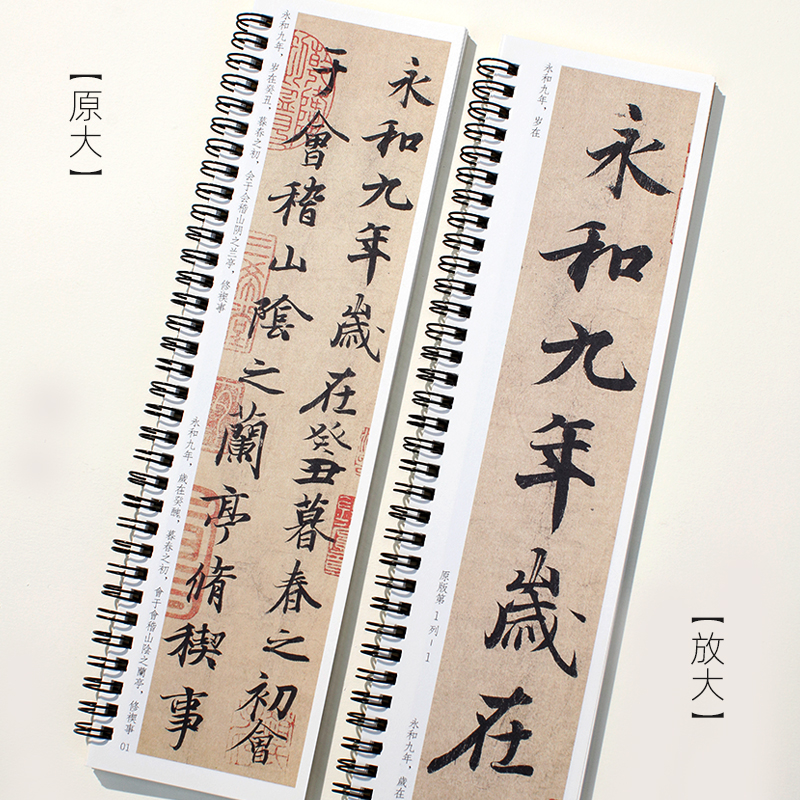 【原大】
永和九年歲在癸丑暮春之初會
于會稽山陰之蘭亭脩稧事
永和九年，岁在癸丑，暮春之初，会于会稽山阴之兰亭，修禊事
永和九年，歲在癸醜，暮春之初，會于會稽山陰之蘭亭，修禊事
01
永和九年歲在
永和九年，岁在
原版第 1 列-1
永和九年，歲在
【放大】